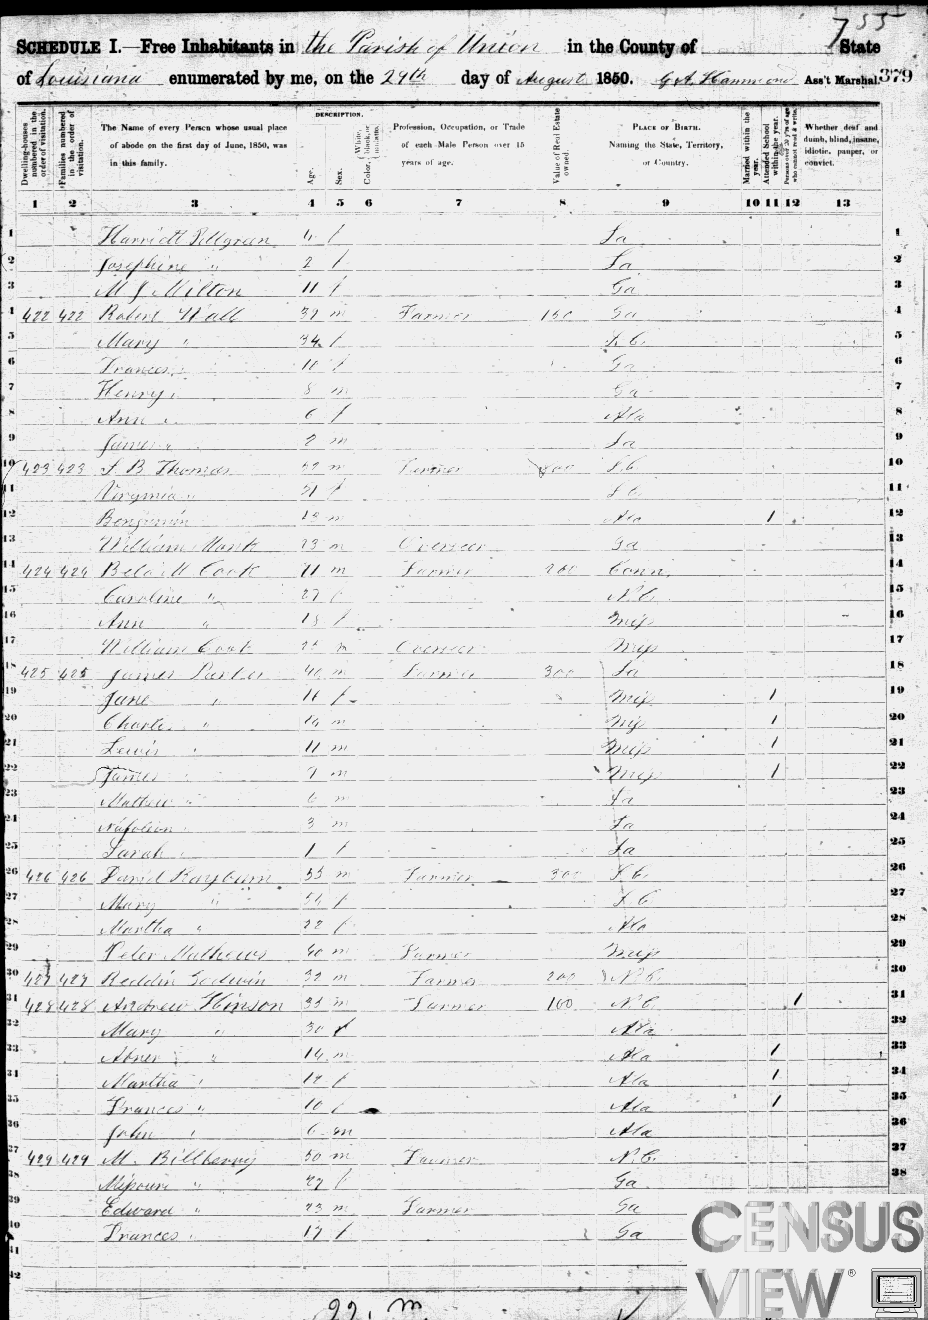 755
SCHEDULE I.—Free Inhabitants in the Parish of Union in the County of State
of Louisiana enumerated by me, on the 29th day of August 1850. G A Hammond Ass't Marshal. 379
Dwelling-houses numbered in the order of visitation.
Families numbered in the order of visitation.
The Name of every Person whose usual place of abode on the first day of June, 1850, was in this family.
DESCRIPTION.
Age.
Sex.
Color, White, black, or mulatto.
Profession, Occupation, or Trade of each Male Person over 15 years of age.
Value of Real Estate owned.
PLACE OF BIRTH. Naming the State, Territory, or Country.
Married within the year.
Attended School within the year.
Persons over 20 y'rs of age who cannot read & write.
Whether deaf and dumb, blind, insane, idiotic, pauper, or convict.
1 2 3 4 5 6 7 8 9 10 11 12 13
1 Harriett Pillgreen 4 f La 1
2 Josephine " 2 f La 2
3 M J Milton 11 f Ga 3
4 422 422 Robert Wall m Farmer 150 Ga 4
5 Mary " 34 f S C 5
6 Frances " 10 f Ga 6
7 Henry " 8 m Ga 7
8 Ann " 6 f Ala 8
9 James " 2 m La 9
10 423 423 S. B Thomas m Farmer S C 10
11 Virginia " f S C 11
12 Benjamin " m Ala 1 12
13 William 23 m Overseer Ga 13
14 424 424 Cook m Farmer 200 Conn. 14
15 Caroline " 27 f N C 15
16 Ann " 18 f Miss 16
17 William Cook m Overseer Miss 17
18 425 425 James Parker 40 m Farmer 300 La 18
19 Jane " 16 f Miss 1 19
20 Charles " 14 m Miss 1 20
21 Lewis " 11 m Miss 1 21
22 James " 9 m Miss 1 22
23 Mathew " 6 m La 23
24 Napoleon " 3 m La 24
25 Sarah " 1 f La 25
26 426 426 David Rayburn 55 m Farmer 300 S C 26
27 Mary " f S C 27
28 Martha " 22 f Ala 28
29 Peter Mathews 40 m Farmer Miss 29
30 427 427 Reddin Godwin 32 m Farmer 200 N. C. 30
31 428 428 Andrew Hinson 35 m Farmer 100 N C 1 31
32 Mary " 30 f Ala 32
33 Abner " 14 m Ala 1 33
34 Martha " 12 f Ala 1 34
35 Frances " 10 f Ala 1 35
36 John " 6 m Ala 36
37 429 429 M. Billberry 50 m Farmer N. C. 37
38 Missouri " 22 f Ga 38
39 Edward " 23 m Farmer Ga
40 Frances " 17 f Ga
41
42
22. m
CENSUS
VIEW®